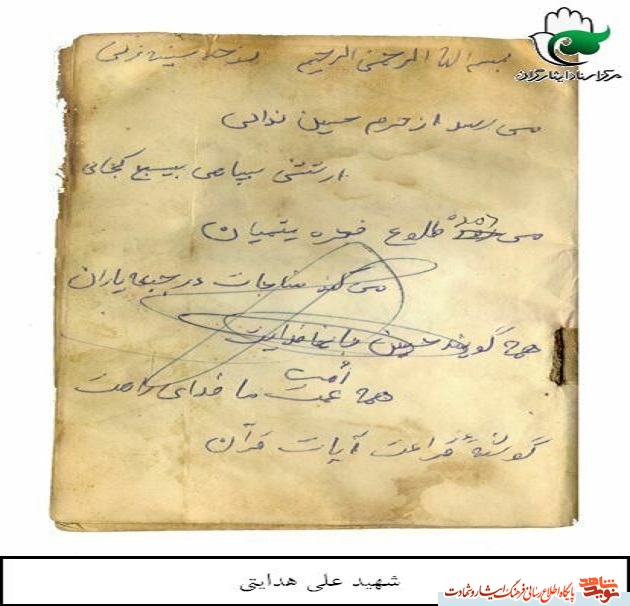 مرکز اسناد ایثارگران
بسم الله الرحمن الرحیم نوحه سینه زنی
می رسد از حرم حسین ندائی
ارتشی سپاهی بسیج کجائی
می طلوع فجره یتیمان
می کند مناجات در جبهه یاران
همه گویند حسین جانها فدایت
امت
همه ما فدای راهت
گوشه قرائت آیات قرآن
شهید علی هدایتی
نوید شاهد
پایگاه اطلاع رسانی فرهنگ ایثار و شهادت